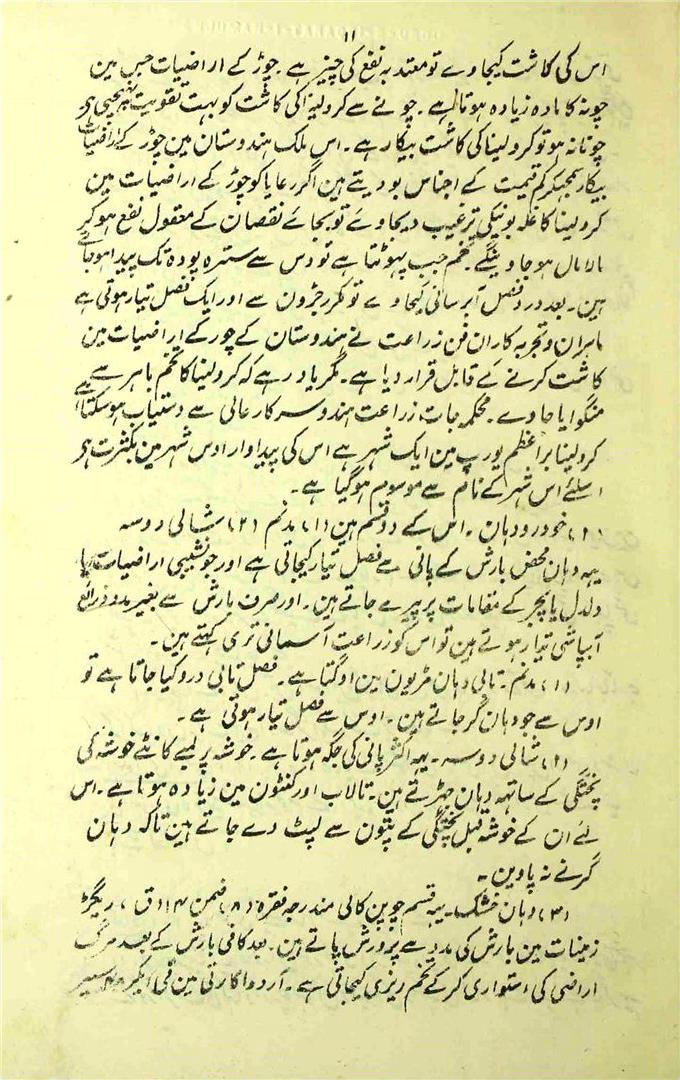 ۱۱
اس کی کاشت کیجاوے تو معتد بہ نفع کی چیز ہے۔ چوڑ کے اراضیات جس مین
چونہ کا مادہ زیادہ ہوتا ہے۔ چونے سے کرولینا کی کاشت کو بہت تقویت پہنچیتی ہی
چونا نہ ہو تو کرولینا کی کاشت بیکار ہے۔ اس ملک ہندوستان مین چوڑ کے اراضیات
بیکار سمجھکر کم قیمت کے اجناس بودیتے ہین اگر رعایا کو چوڑ کے اراضیات مین
کرولینا کا غلہ بونیکی ترغیب دیجاوے تو بجائے نقصان کے معقول نفع ہو کر
مالا مال ہو جاوینگے۔ تخم جب پہوٹتا ہے تو دس سے سترہ پودہ تک پیدا ہوجاتے
ہین۔ بعد درو فصل آبرسانی کیجاوے تو مکرر جڑون سے اور ایک فصل تیار ہوتی ہے
ماہران و تجربہ کاران فن زراعت نے ہندوستان کے چور کے اراضیات مین
کاشت کرنے کے قابل قرار دیا ہے۔ مگر یاد رہے کہ کرولینا کا تخم باہر سے
منگوایا جاوے۔ محکمہ جات زراعت ہند و سرکار عالی سے دستیاب ہو سکتا ہے
کرولینا براعظم یورپ مین ایک شہر ہے اس کی پیداوار اوس شہر مین بکثرت ہی
اسلئے اس شہر کے نام سے موسوم ہو گیا ہے۔
(۲) خودرو دہان۔ اس کے دو قسم ہین (۱) مدنم (۲) شالی دوسہ
یہہ دہان محض بارش کے پانی سے فصل تیار کیجاتی ہے اور جو نشیبی اراضیات یا
دلدل یا کیچر کے مقامات پر پیرے جاتے ہین۔ اور صرف بارش سے بغیر مدد ذرائع
آبپاشی تیار ہوتے ہین تو اس کو زراعت آسمانی تری کہتے ہین۔
(۱) مدنم۔ تابی دہان مڑیون مین اوگتا ہے۔ فصل تابی درو کیا جاتا ہے تو
اوس سے جو دہان گر جاتے ہین۔ اوس سے فصل تیار ہوتی ہے۔
(۲) شالی دوسہ۔ یہہ اکثر پانی کی جگہ ہوتا ہے۔ خوشہ پر لمبے کانٹے خوشہ کی
پختگی کے ساتھہ دہان جہڑتے ہین۔ تالاب اور کنٹون مین زیادہ ہوتا ہے۔ اس
لئے ان کے خوشہ قبل پختگی کے پتون سے لپٹ دے جاتے ہین تاکہ دہان
گرنے نہ پاوین۔
(۳) دہان خشک۔ یہہ قسم جو پن کالی مندرجہ فقرہ (۸) ضمن (۴) ق، ریگڑ
زمینات مین بارش کی مدد سے پرورش پاتے ہین۔ بعد کافی بارش کے بعد مرگ
اراضی کی استواری کر کے تخم ریزی کیجاتی ہے۔ آردوا کارتی مین فی ایکر سیر